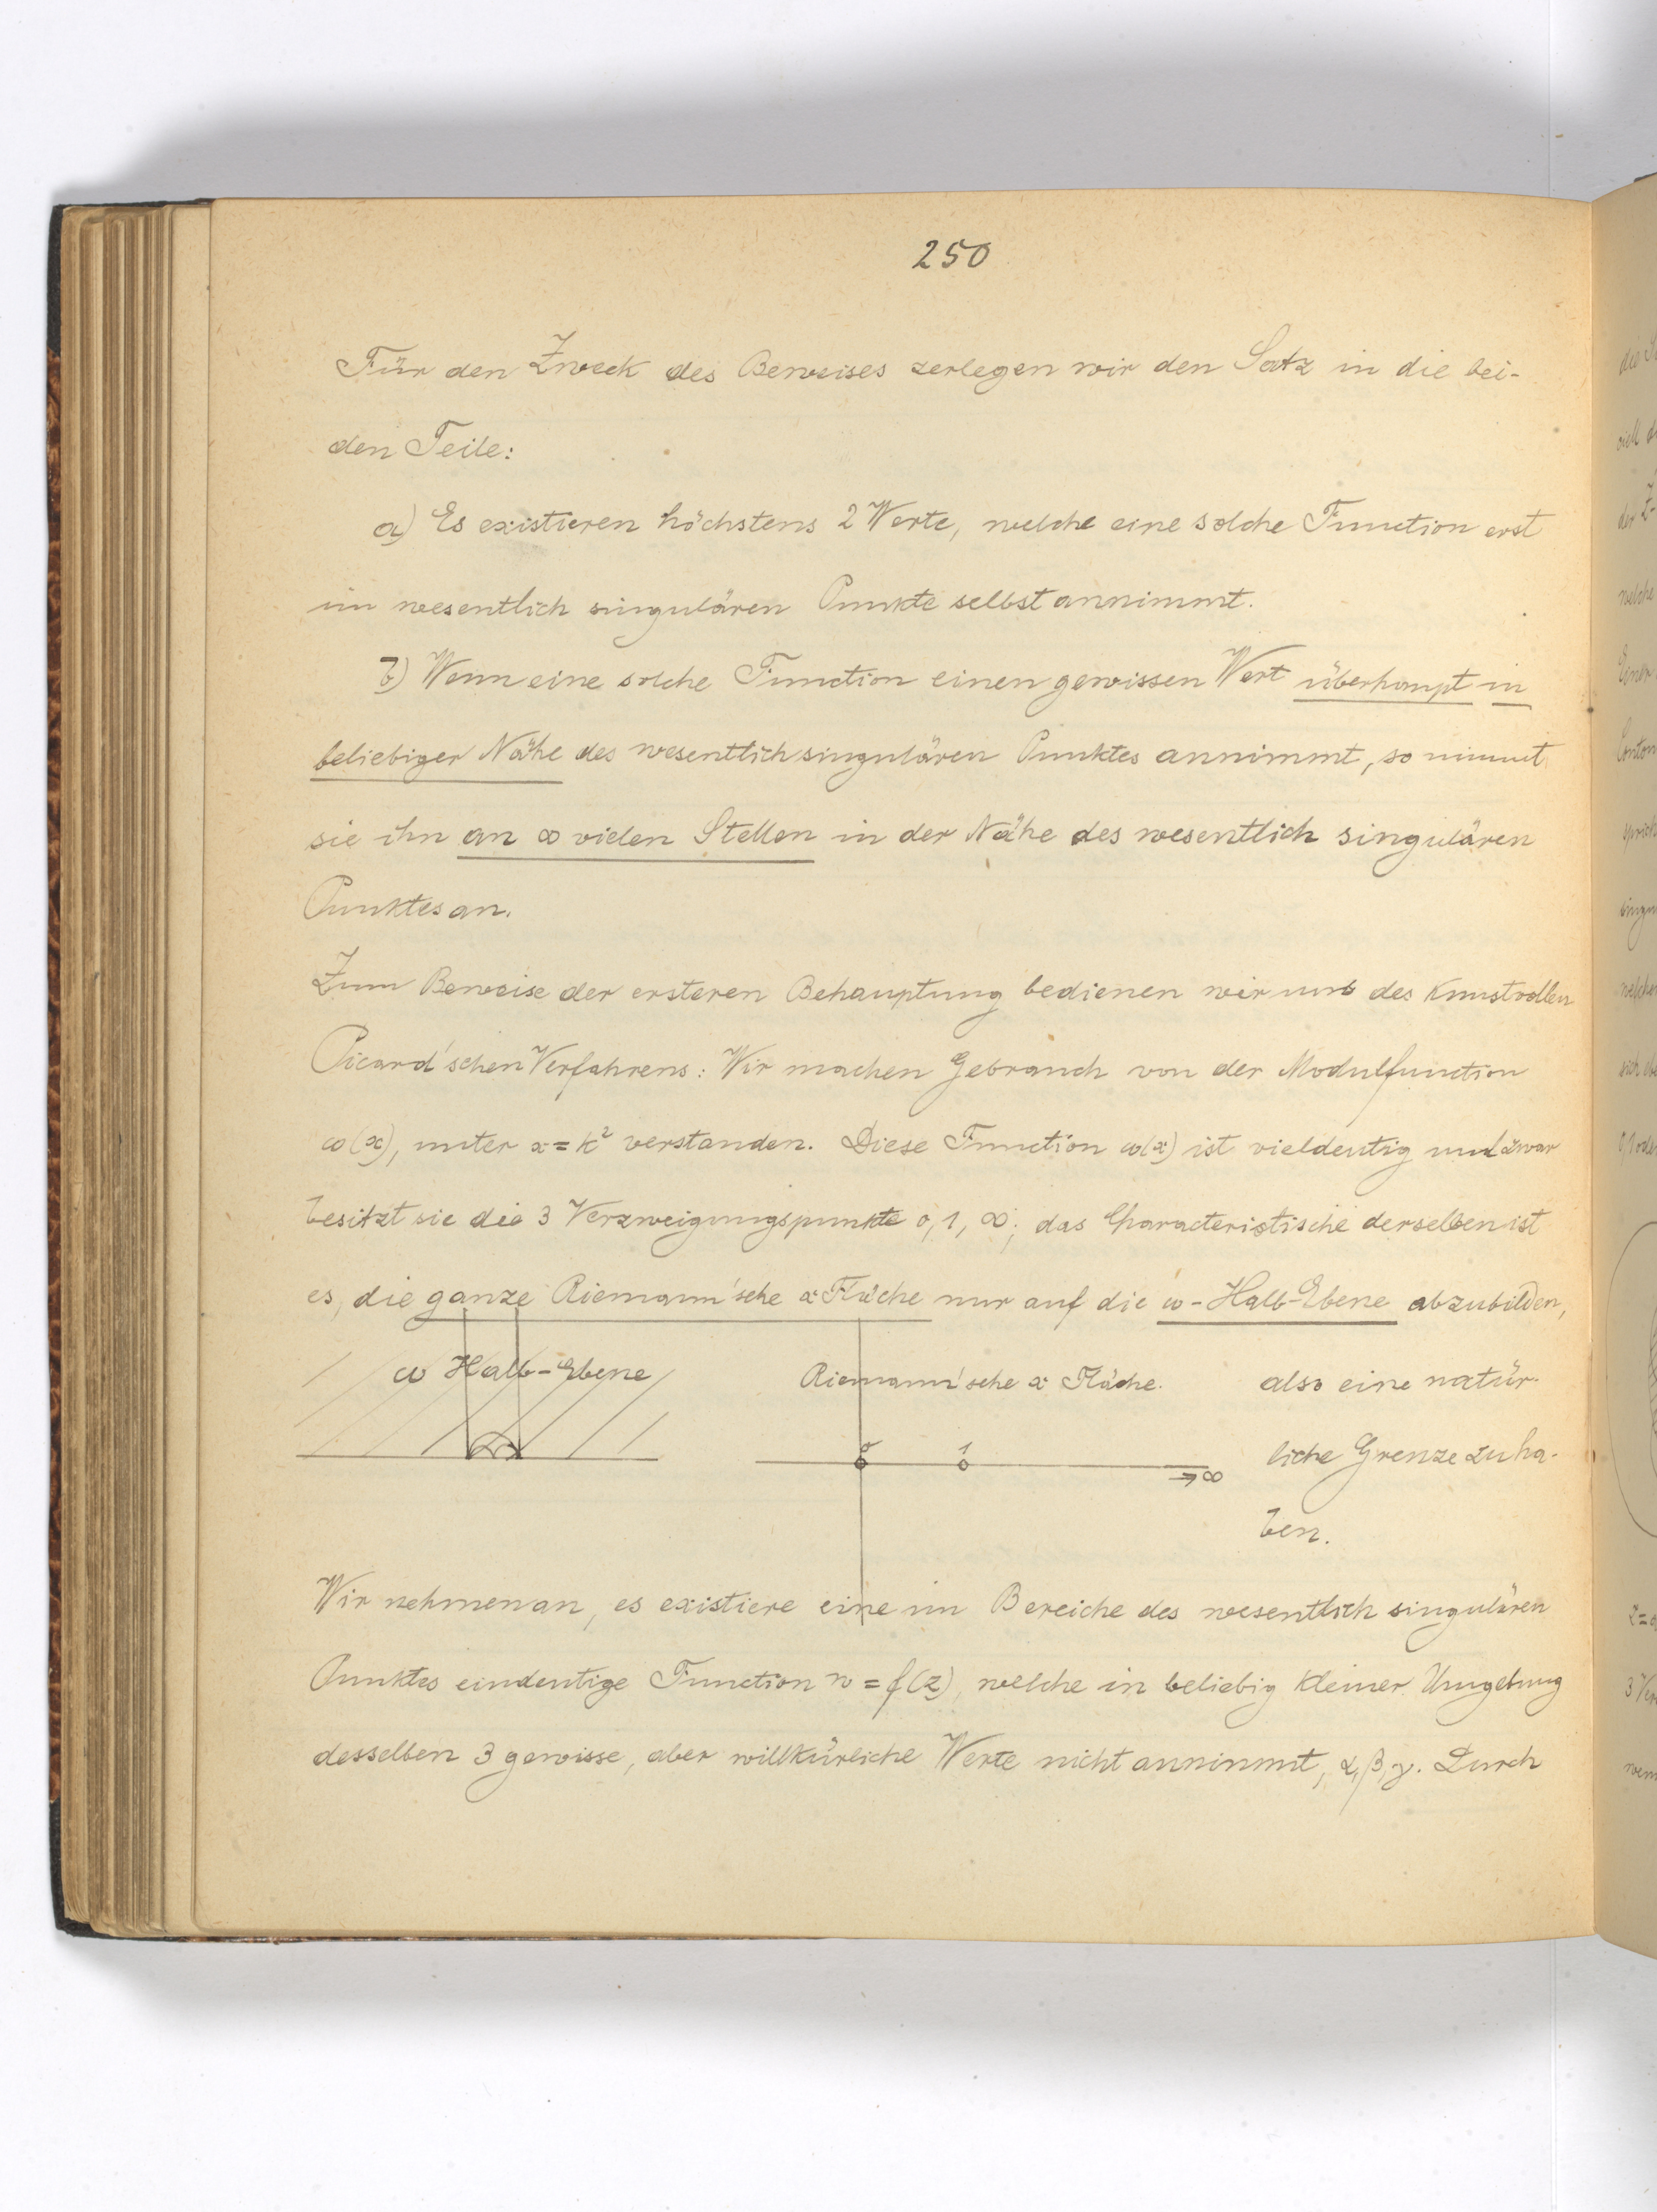 250
Für den Zweck des Beweises zerlegen wir den Satz in die bei-
den Teile:
a) Es existieren höchstens 2 Werte, welche eine solche Function erst
im wesentlich singulären Punkte selbst annimmt.
b) Wenn eine solche Function einen gewissen Wert überhaupt in
beliebiger Nähe des wesentlich singulären Punktes annimmt, so nimmt
sie ihn an ∞ vielen Stellen in der Nähe des wesentlich singulären
Punktes an.
Zum Beweise der ersteren Behauptung bedienen wir uns des kunstvollen
Picard'schen Verfahrens: Wir machen Gebrauch von der Modulfunction
ω(x), unter x = k² verstanden. Diese Function ω(x) ist vieldeutig und zwar
besitzt sie die 3 Verzweigungspunkte 0, 1, ∞; das Characteristische derselben ist
es, die ganze Riemann'sche x Fläche nur auf die ω-Halb-Ebene abzubilden,
ω Halb-Ebene
Riemann'sche x Fläche.
also eine natür-
0 1
liche Grenze zu ha-
∞
ben.
Wir nehmen an, es existiere eine im Bereiche des wesentlich singulären
Punktes eindeutige Function w = f(z), welche in beliebig kleiner Umgebung
desselben 3 gewisse, aber willkürliche Werte nicht annimmt, α, β, γ. Durch